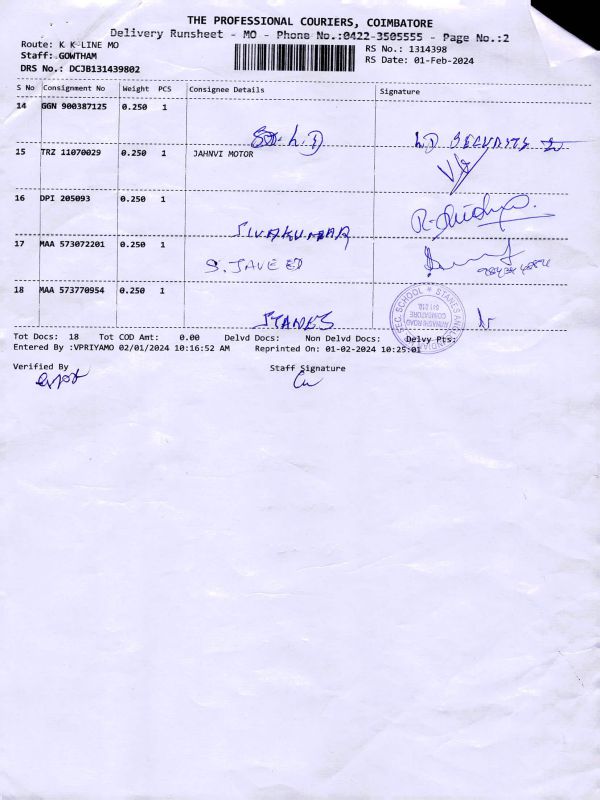 THE PROFESSIONAL COURIERS, COIMBATORE
Delivery Runsheet - MO - Phone No.:0422-3505555 - Page No.:2
Route: K K-LINE MO
Staff: GOWTHAM
DRS No.: DCJB131439802
RS No.: 1314398
RS Date: 01-Feb-2024
S No Consignment No Weight PCS Consignee Details Signature
14 GGN 900387125 0.250 1
SECURITY
15 TRZ 11070029 0.250 1 JAHNVI MOTOR
16 DPI 205093 0.250 1
SIVAKUMAR
17 MAA 573072201 0.250 1
S. JAVEED
18 MAA 573770954 0.250 1
STANES
STANES ANGLO INDIAN SEC. SCHOOL
AVINASHI ROAD
COIMBATORE
Tot Docs: 18 Tot COD Amt: 0.00 Delvd Docs: Non Delvd Docs: Delvy Pts:
Entered By :VPRIYAMO 02/01/2024 10:16:52 AM Reprinted On: 01-02-2024 10:25:01
Verified By Staff Signature